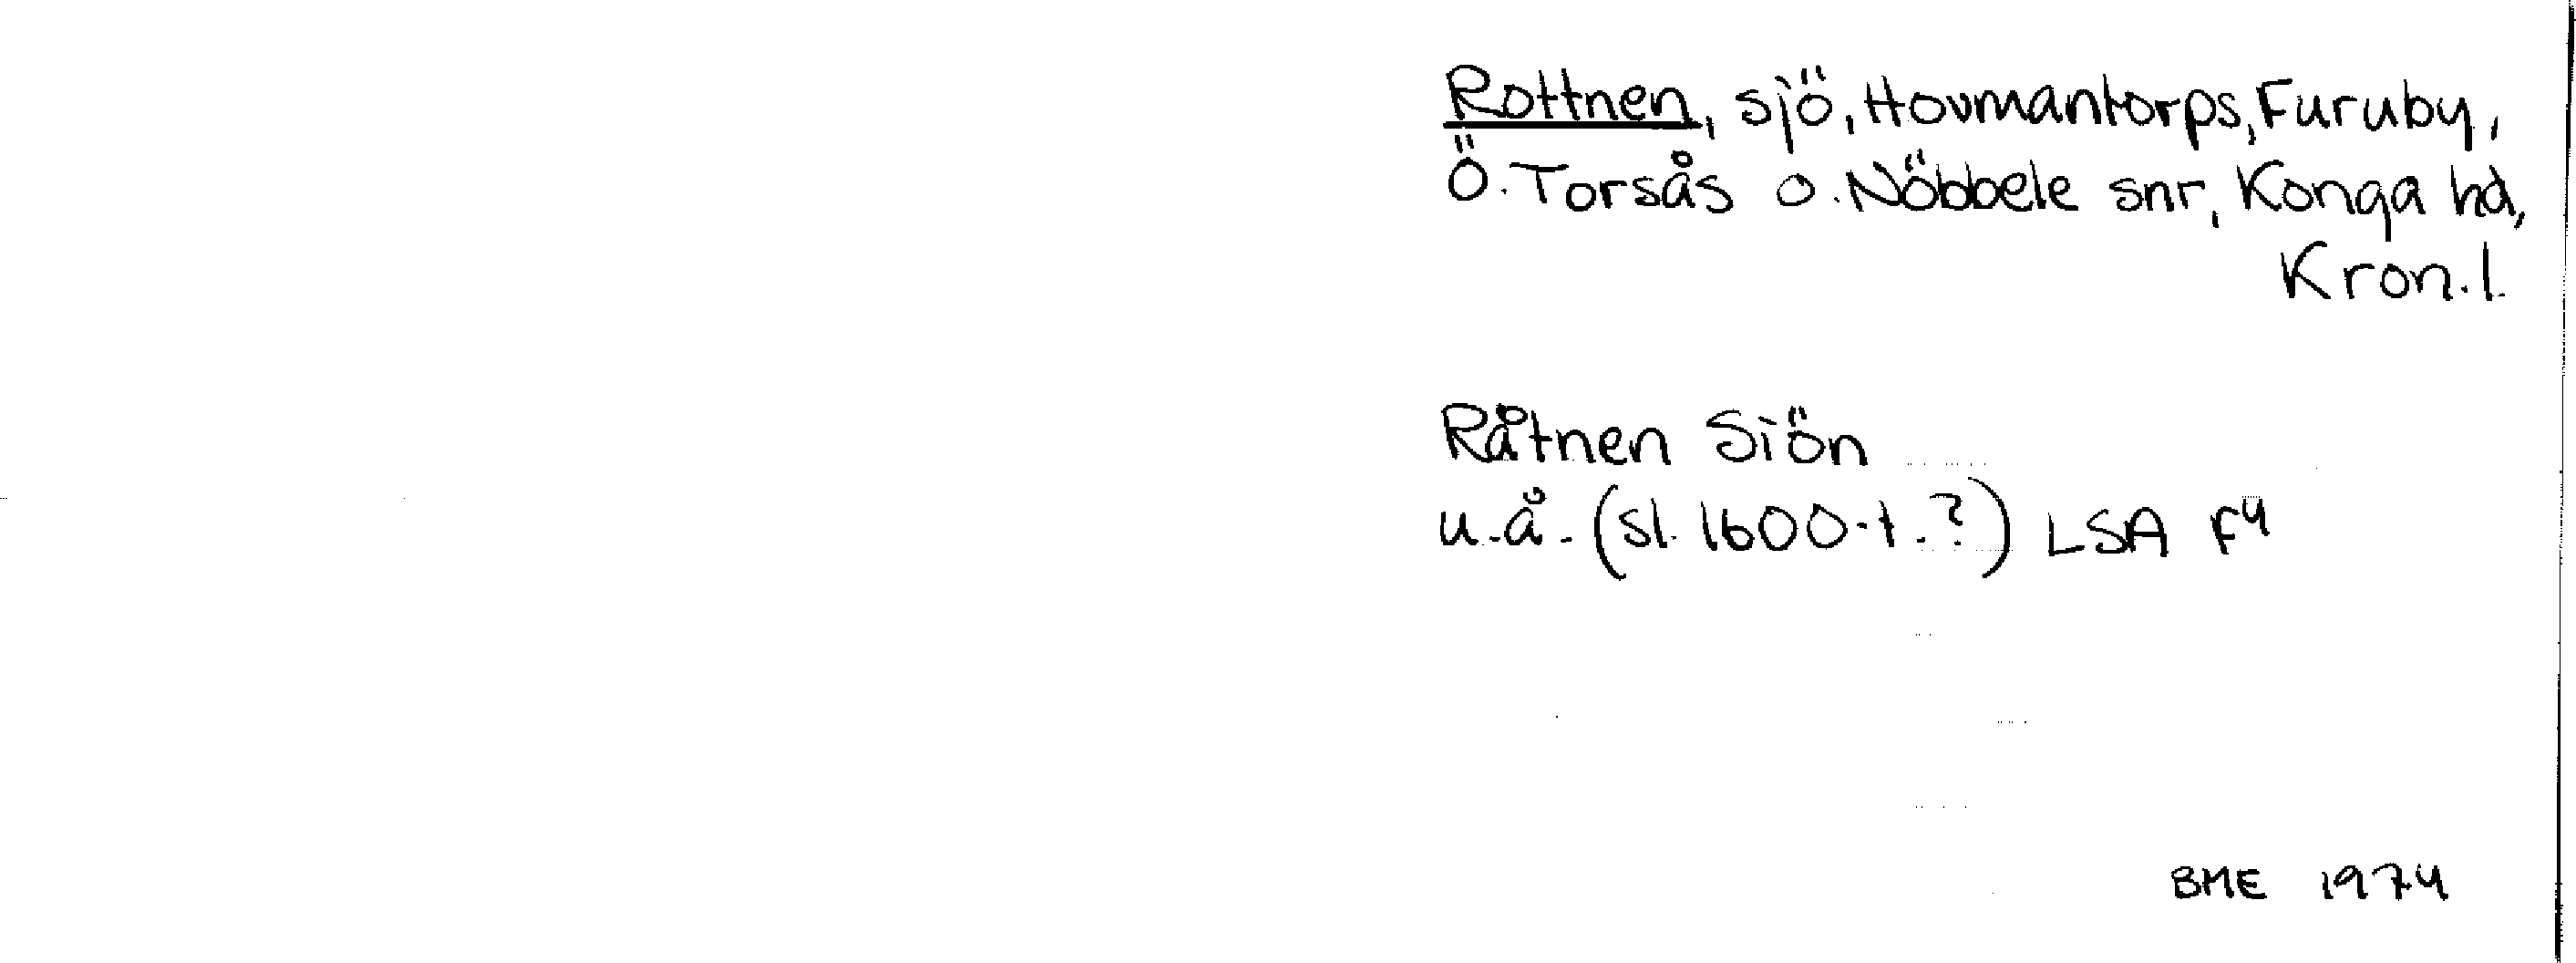 Rottnen, sjö, Hovmantorps, Furuby,
Ö. Torsås o. Nöbbele snr, Konga hd,
Kron. l.
Råtnen Siön
u. å. (sl. 1600-t. ?) LSA F4
BME 1974